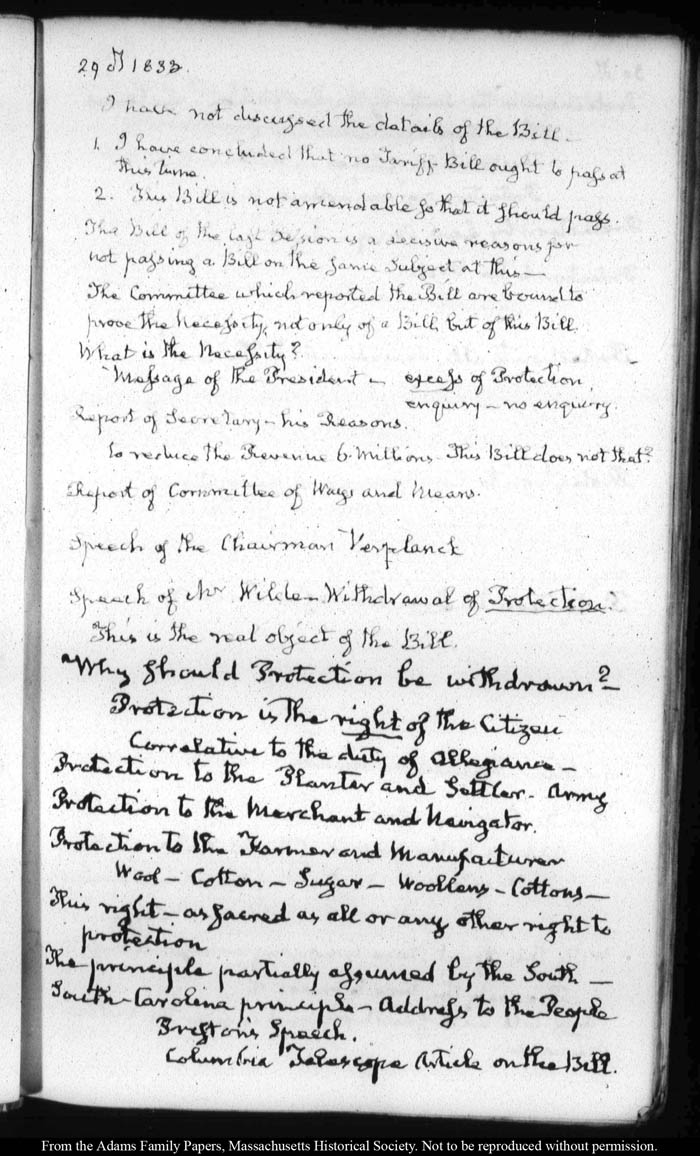 29 1833.
I have not discussed the details of the Bill —
1. I have concluded that no Tariff Bill ought to pass at
this time.
2. This Bill is not amendable so that it should pass.
The Bill of the last Session is a decisive reasons for
not passing a Bill on the same Subject at this —
The Committee which reported the Bill are bound to
prove the Necessity, not only of a Bill, but of this Bill.
What is the Necessity?
Message of the President — excess of Protection,
enquiry — no enquiry.
Report of Secretary — his Reasons.
to reduce the Revenue 6 Millions. This Bill does not that?
Report of Committee of Ways and Means.
Speech of the Chairman Verplanck
Speech of Mr Wilde — Withdrawal of Protection.
This is the real object of the Bill.
Why should Protection be withdrawn? —
Protection is the right of the Citizen
Correlative to the duty of Allegiance —
Protection to the Planter and Settler. Army
Protection to the Merchant and Navigator.
Protection to the Farmer and Manufacturer
Wool — Cotton — Sugar — Woollens — Cottons —
This right — as sacred as all or any other right to
protection
The principle partially assumed by the South —
South-Carolina principle — Address to the People
Preston's Speech.
Columbia Telescope Article on the Bill.
From the Adams Family Papers, Massachusetts Historical Society. Not to be reproduced without permission.